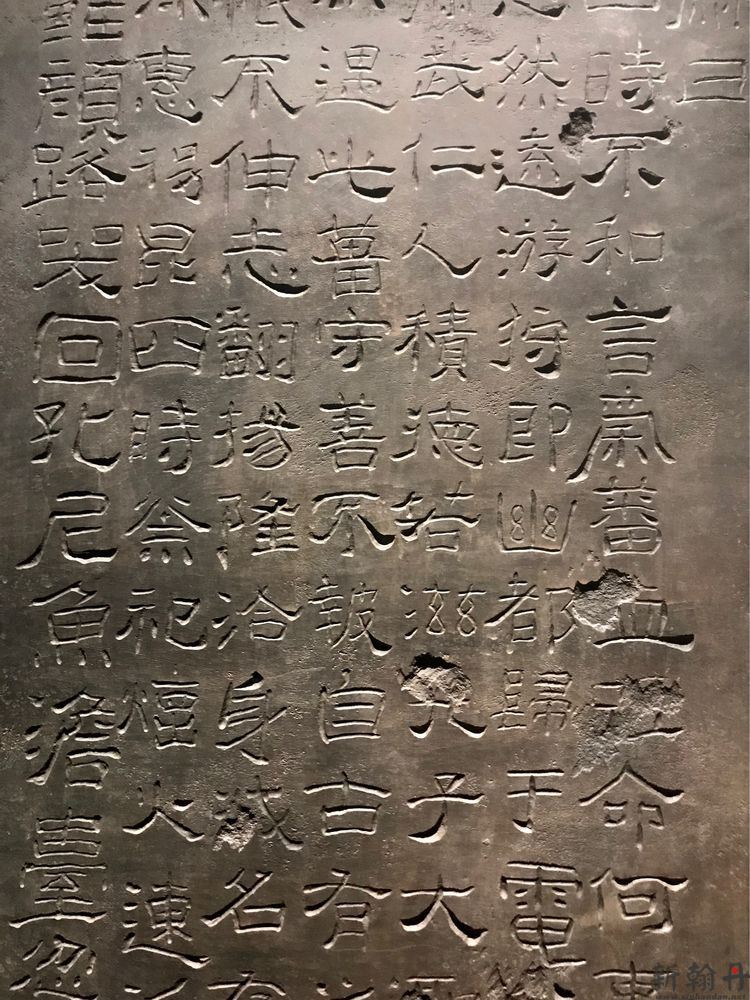 曰
時不和言蕃血命何
然遠游将即幽都歸于電
武仁人積德若滋子大
遇此菑守善不報自古有
不伸志翻揚隆洽身滅名
惠得昆四時祭祀煙火連
顔路哭回孔尼魚澹臺忿
新翰丹